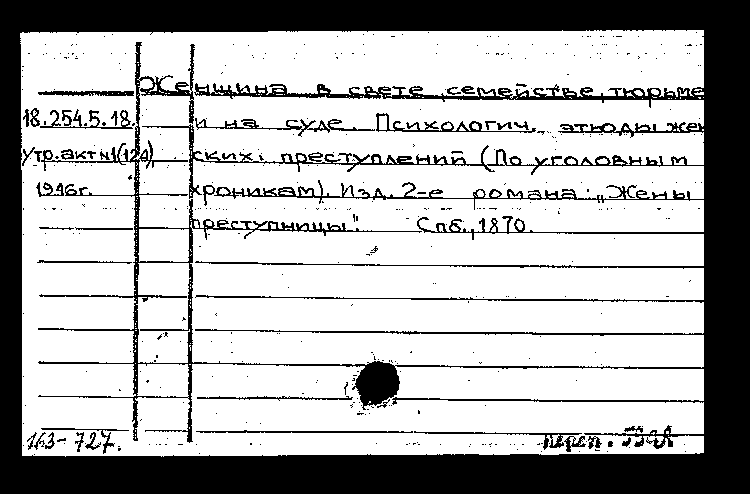 Женщина в свете, семействе, тюрьме
18.254.5.18. и на суде. Психологич. этюды жен
Утр.акт№1(124) ских преступлений (По уголовным
1946г. хроникам). Изд. 2-е романа: „Жены
преступницы". Спб., 1870.
163-727. переп.